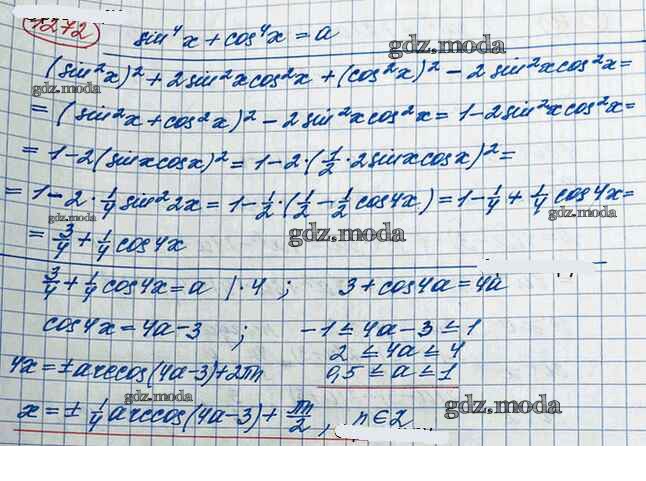 1272
sin⁴x + cos⁴x = a
gdz.moda
(sin²x)² + 2sin²xcos²x + (cos²x)² - 2sin²xcos²x =
gdz.moda
= (sin²x + cos²x)² - 2sin²xcos²x = 1 - 2sin²xcos²x =
= 1 - 2(sinxcosx)² = 1 - 2·(1/2·2sinxcosx)² =
= 1 - 2·1/4 sin²2x = 1 - 1/2·(1/2 - 1/2 cos4x) = 1 - 1/4 + 1/4 cos4x =
gdz.moda
gdz.moda
= 3/4 + 1/4 cos4x
gdz.moda
3/4 + 1/4 cos4x = a |·4 ; 3 + cos4a = 4a
cos4x = 4a - 3 ; -1 ≤ 4a - 3 ≤ 1
2 ≤ 4a ≤ 4
4x = ± arccos(4a - 3) + 2πn 0,5 ≤ a ≤ 1
gdz.moda
gdz.moda
x = ± 1/4 arccos(4a - 3) + πn/2, n ∈ Z